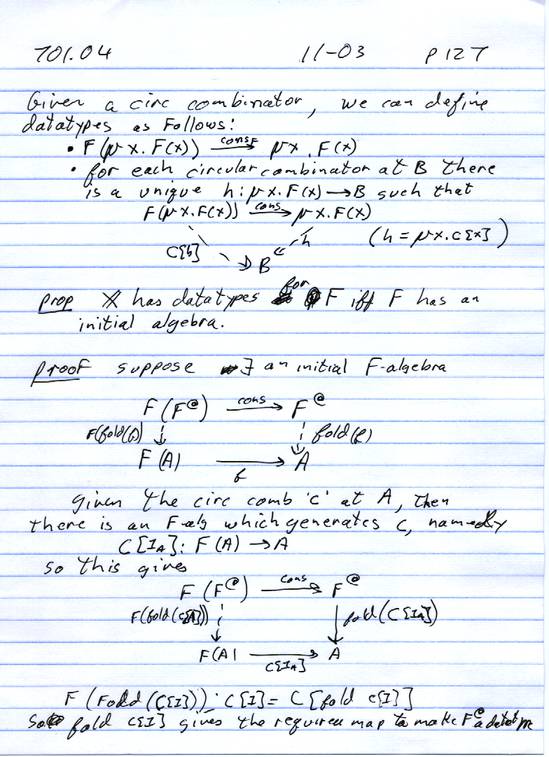 701.04 11-03 P127
Given a circ combinator, we can define
datatypes as follows:
• F(μx.F(x)) cons_F→ μx.F(x)
• for each circular combinator at B there
is a unique h: μx.F(x) → B such that
F(μx.F(x)) cons→ μx.F(x)
C[h] h (h = μx.c[x])
B
prop X has datatypes for F iff F has an
initial algebra.
proof suppose ∃ an initial F-algebra
F(F^@) cons→ F^@
F(fold(f)) fold(f)
F(A) f→ A
given the circ comb 'c' at A, then
there is an F-alg which generates c, namedly
C[I_A]: F(A) → A
so this gives
F(F^@) cons→ F^@
F(fold(C[I_A])) fold(C[I_A])
F(A) C[I_A]→ A
F(Fold(C[I])) · C[I] = C[fold c[I]]
So fold c[I] gives the required map to make F^@ a datatype